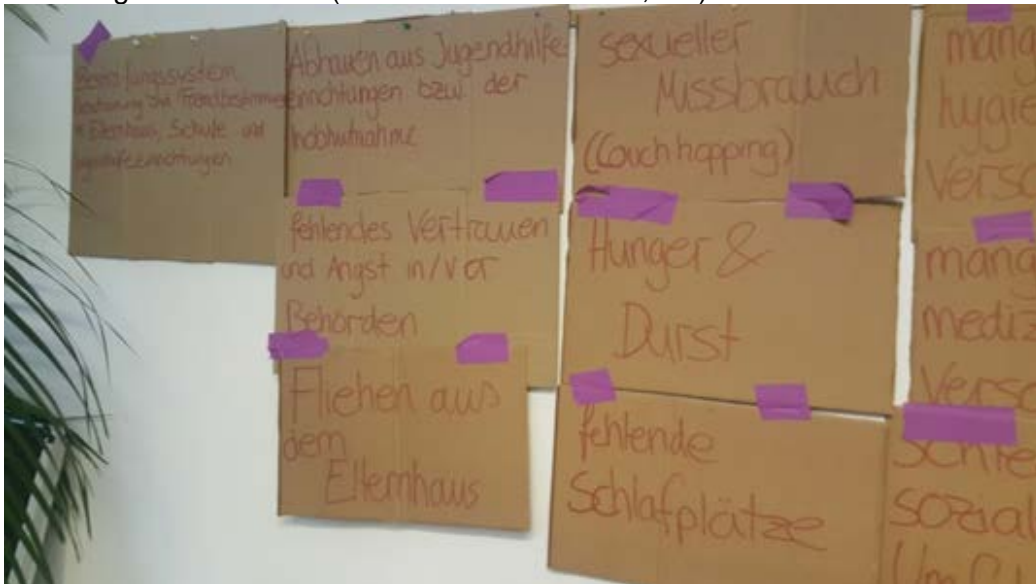 Bestrafungssystem
Fremdbestimmung
in Elternhaus, Schule und
Jugendhilfeeinrichtungen
Abhauen aus Jugendhilfe-
einrichtungen bzw. der
Inobhutnahme
fehlendes Vertrauen
und Angst in/vor
Behörden
Fliehen aus
dem
Elternhaus
sexueller
Missbrauch
(Couchhopping)
Hunger &
Durst
fehlende
Schlafplätze
mang
hygie
Verso
mang
mediz
Verso
sozial